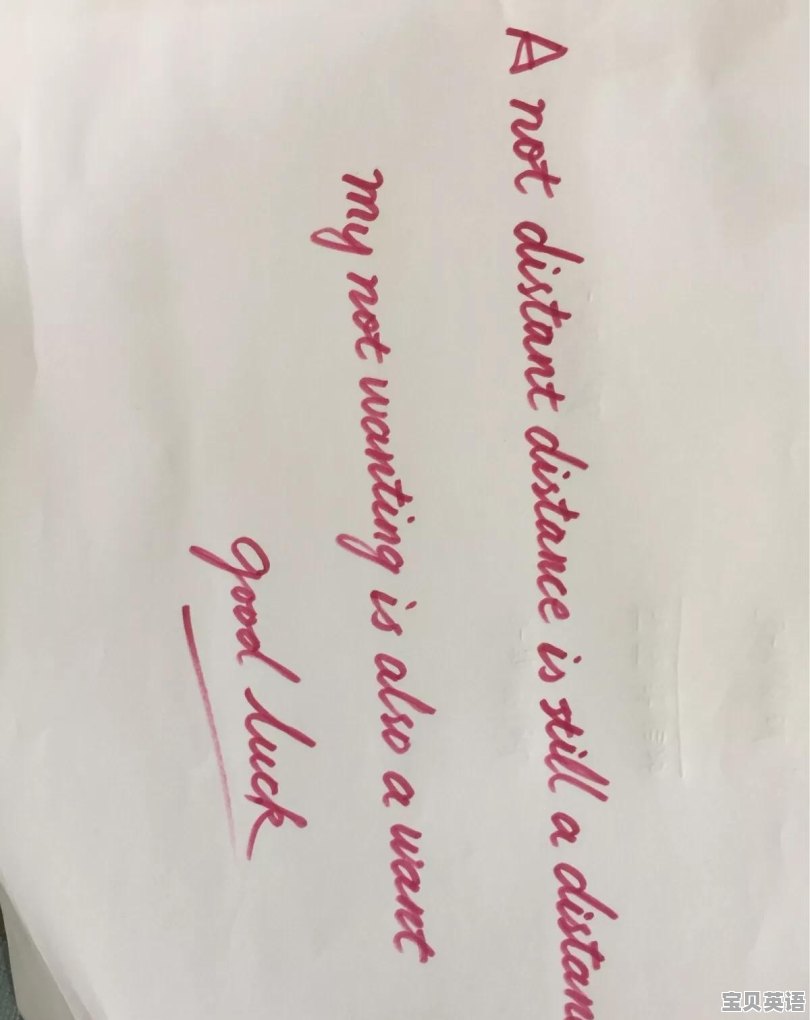 A not distant distance is still a distan
My not wanting is also a want
good luck
宝贝英语